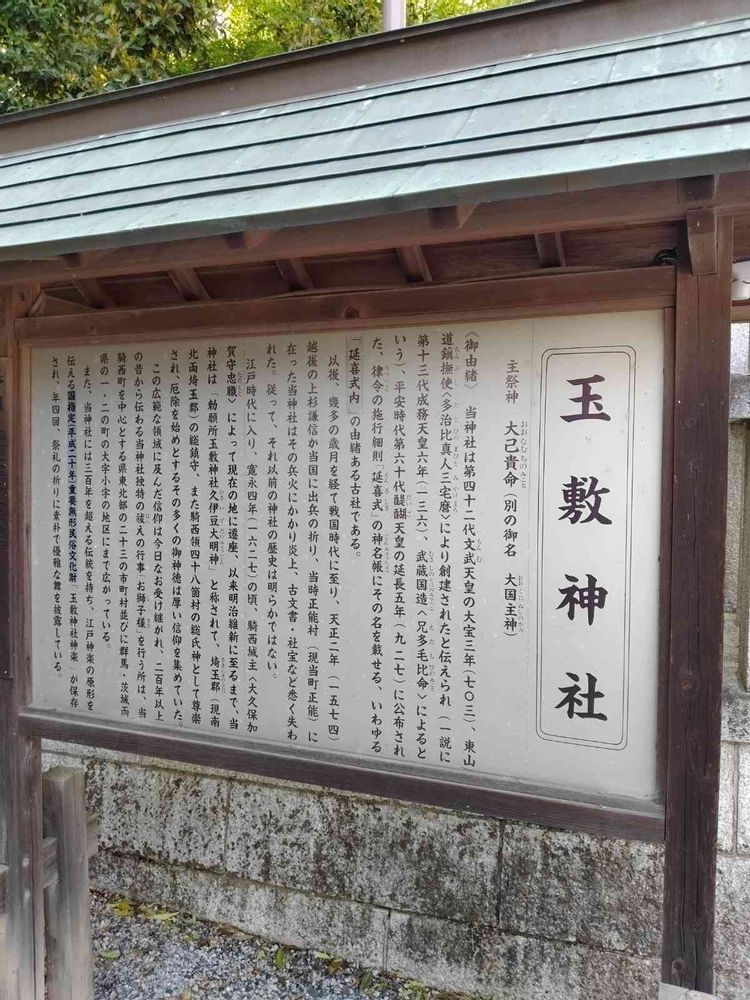 玉敷神社
主祭神 大己貴命（別の御名 大国主神）
《御由緒》 当神社は第四十二代文武天皇の大宝三年（七〇三）、東山
道鎮撫使〈多治比真人三宅麿〉により創建されたと伝えられ（一説に
第十三代成務天皇六年（一三六）、武蔵国造〈兄多毛比命〉によると
いう）、平安時代第六十代醍醐天皇の延長五年（九二七）に公布され
た、律令の施行細則「延喜式」の神名帳にその名を載せる、いわゆる
「延喜式内」の由緒ある古社である。
以後、幾多の歳月を経て戦国時代に至り、天正二年（一五七四）
越後の上杉謙信が当国に出兵の折り、当時正能村（現当町正能）に
在った当神社はその兵火にかかり炎上、古文書・社宝など悉く失わ
れた。従って、それ以前の神社の歴史は明らかではない。
江戸時代に入り、寛永四年（一六二七）の頃、騎西城主〈大久保加
賀守忠職〉によって現在の地に遷座、以来明治維新に至るまで、当
神社は「勅願所玉敷神社久伊豆大明神」と称されて、埼玉郡（現南
北両埼玉郡）の総鎮守、また騎西領四十八箇村の総氏神として尊崇
され、厄除を始めとするその多くの御神徳は厚い信仰を集めていた。
この広範な領域に及んだ信仰は今日なお受け継がれ、二百年以上
の昔から伝わる当神社独特の祓えの行事「お獅子様」を行う所は、当
騎西町を中心とする県東北部の二十三の市町村並びに群馬・茨城両
県の一・二の町の大字小字の地区にまで広がっている。
また、当神社には三百年を越える伝統を持ち、江戸神楽の原形を
伝える国指定（平成二十年）重要無形民俗文化財「玉敷神社神楽」が保存
され、年四回、祭礼の折りに素朴で優雅な舞を披露している。